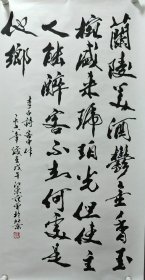 蘭陵美酒鬱金香玉
椀盛来琥珀光但使主
人能醉客不知何處是
他鄉
李白詩客中作